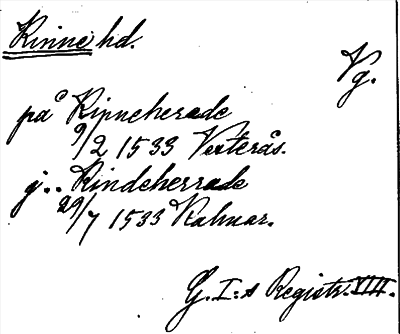 Kinne hd.
Vg.
på Kipneherade
9/2 1533 Vesterås.
j.. Kindeherrade
29/7 1533 Kalmar.
G. I:s Registr. VIII.